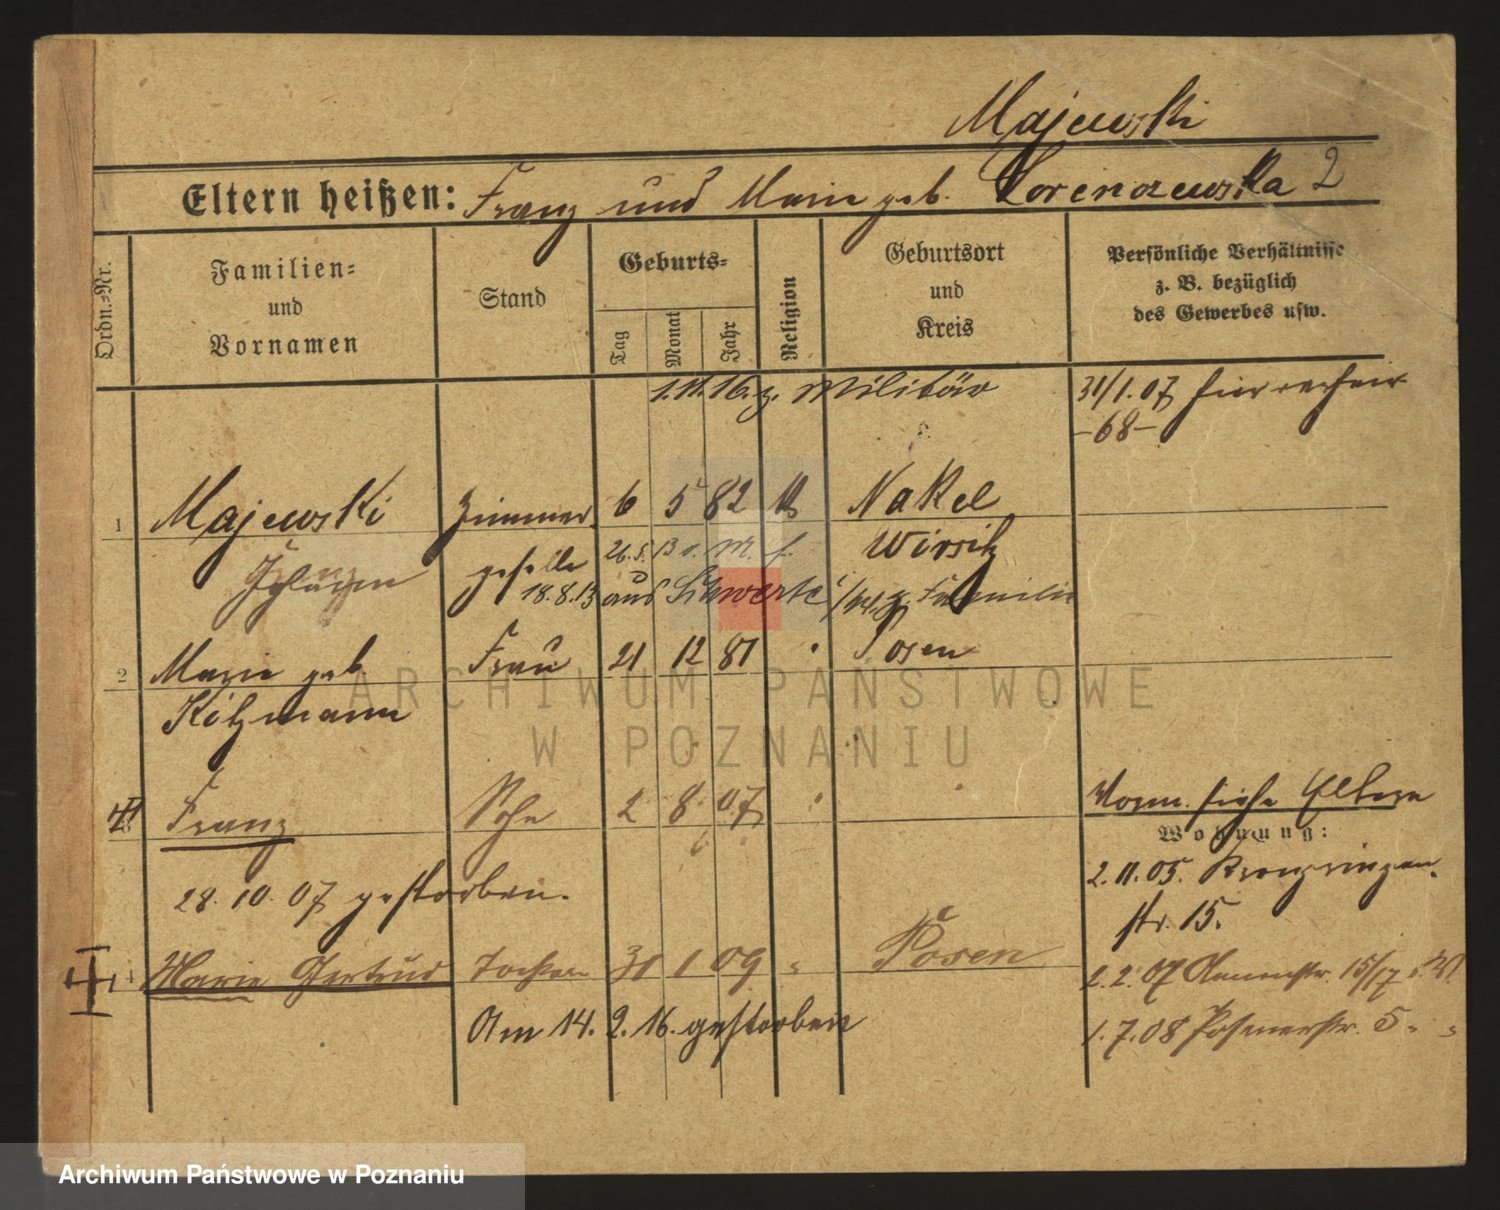 Majewski
Eltern heißen: Franz und Marie geb. Lorenzewska 2
Ordn.-Nr.
Familien- und Vornamen
Stand
Geburts-
Tag
Monat
Jahr
Religion
Geburtsort und Kreis
Persönliche Verhältnisse z. B. bezüglich des Gewerbes usw.
1.11.16. z. Militär
31/1.07
-68-
1 Majewski Zimmer 6 5 82 Nakel
geselle Wirsitz
26.5.13
18.8.13 aus Schwerte Familie
2 Marie geb. Frau 21 12 81 " Posen
Kitzmann
3 Franz Sohn 2 8 07 "
28.10.07 gestorben.
Vorm. siehe Eltern
Wohnung:
2.11.05. Kronprinzen-
str. 15.
4 Marie Gertrud Tochter 31 1 09 " Posen
2.2.07 15/17
Am 14. 2. 16. gestorben
1.7.08 Posenerstr. 5 " "
ARCHIWUM PAŃSTWOWE
W POZNANIU
Archiwum Państwowe w Poznaniu